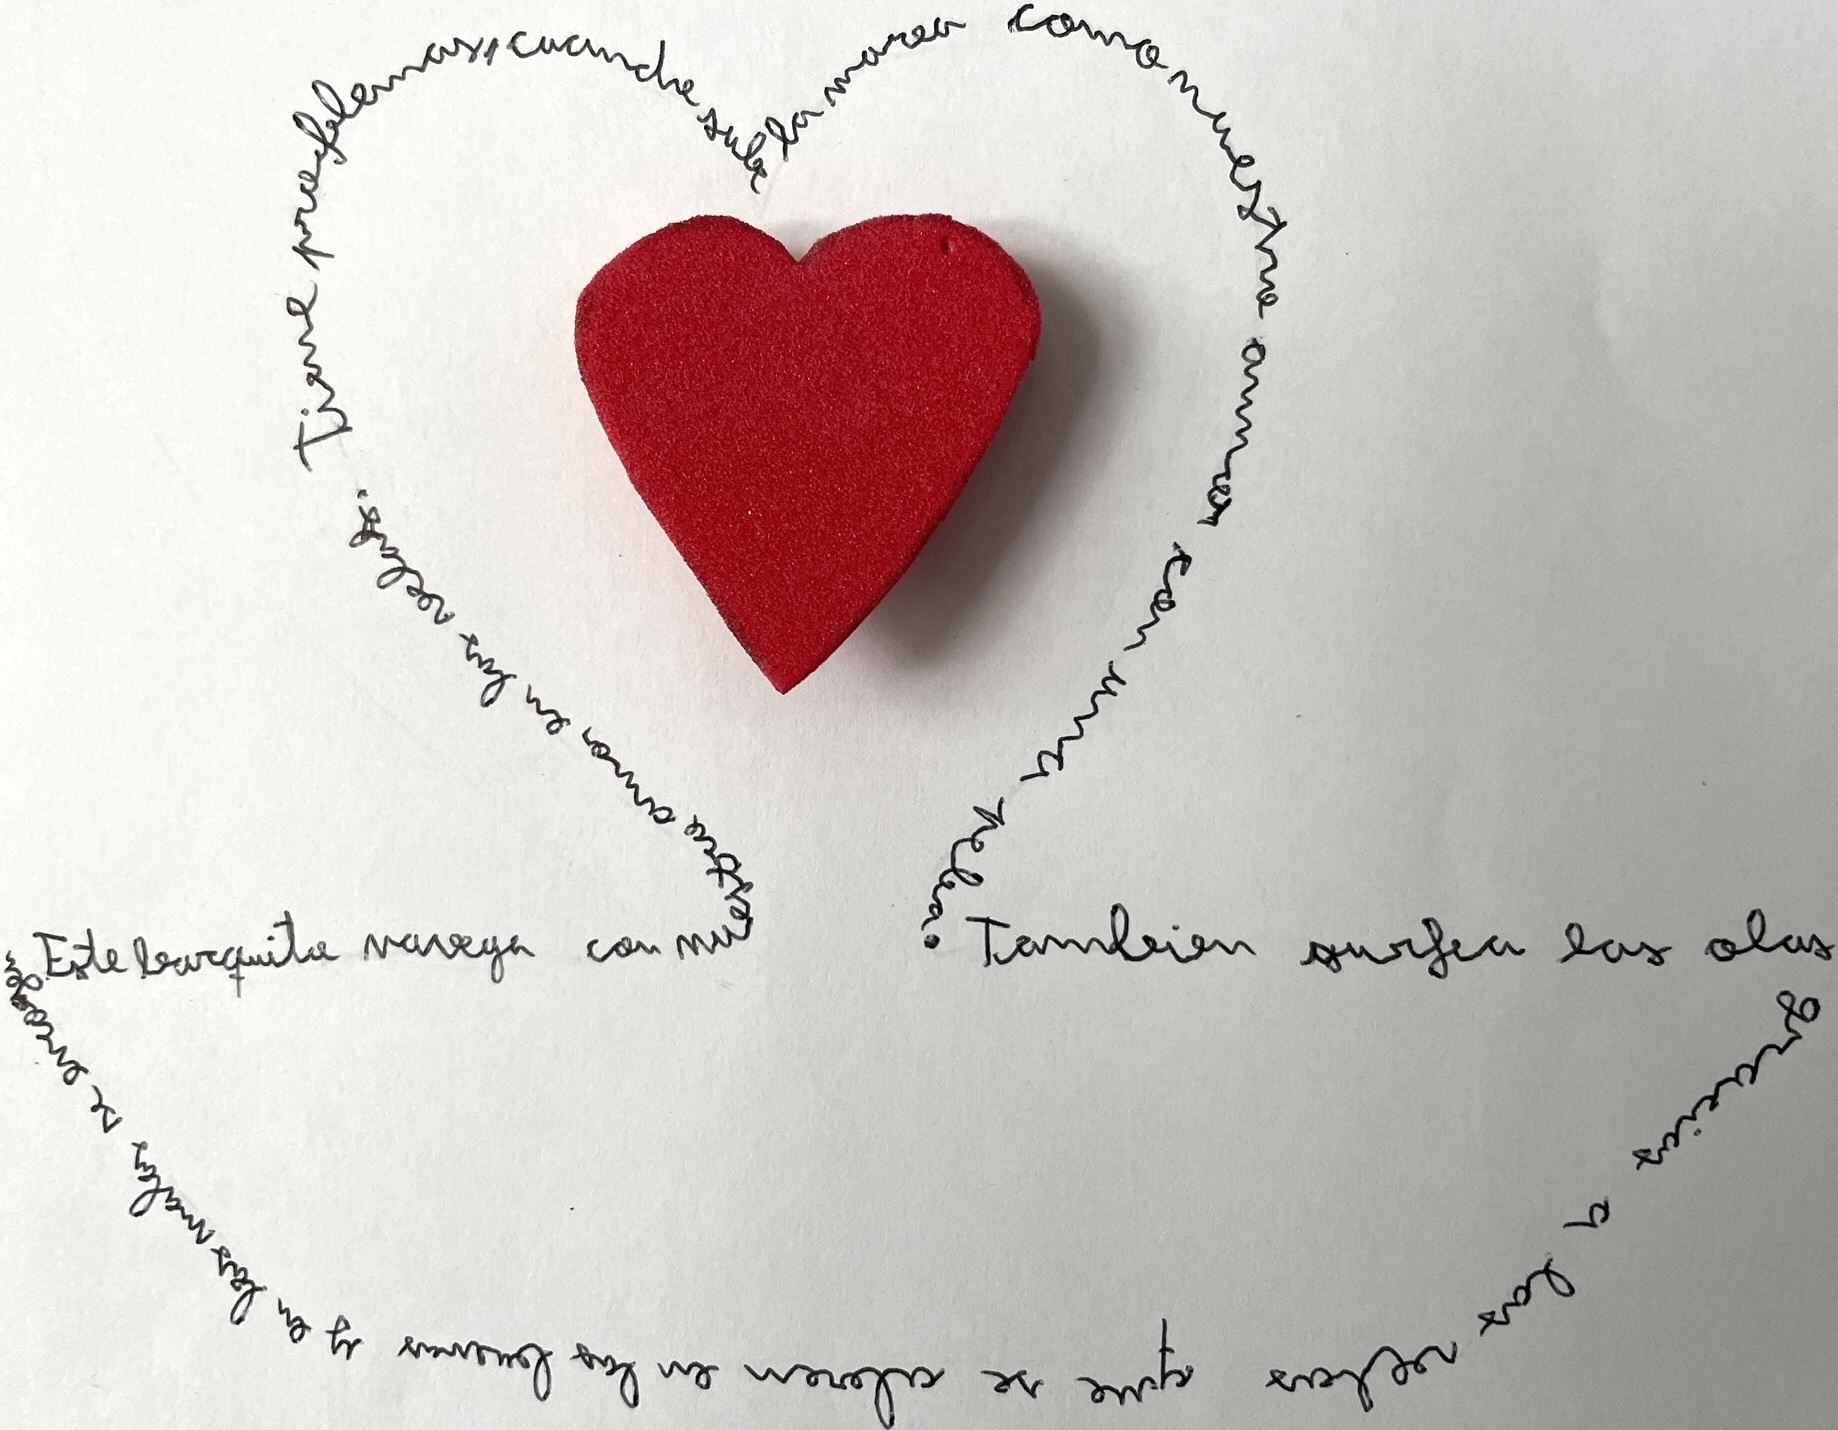 Este barquito navega con nuestro amor en las velas.
Tiene problemas, cuando sube
la marea como nuestro amor con una pelea.
Tambien surfea las olas
gracias a las velas
que se abren en las buenas y en las malas se encogen.